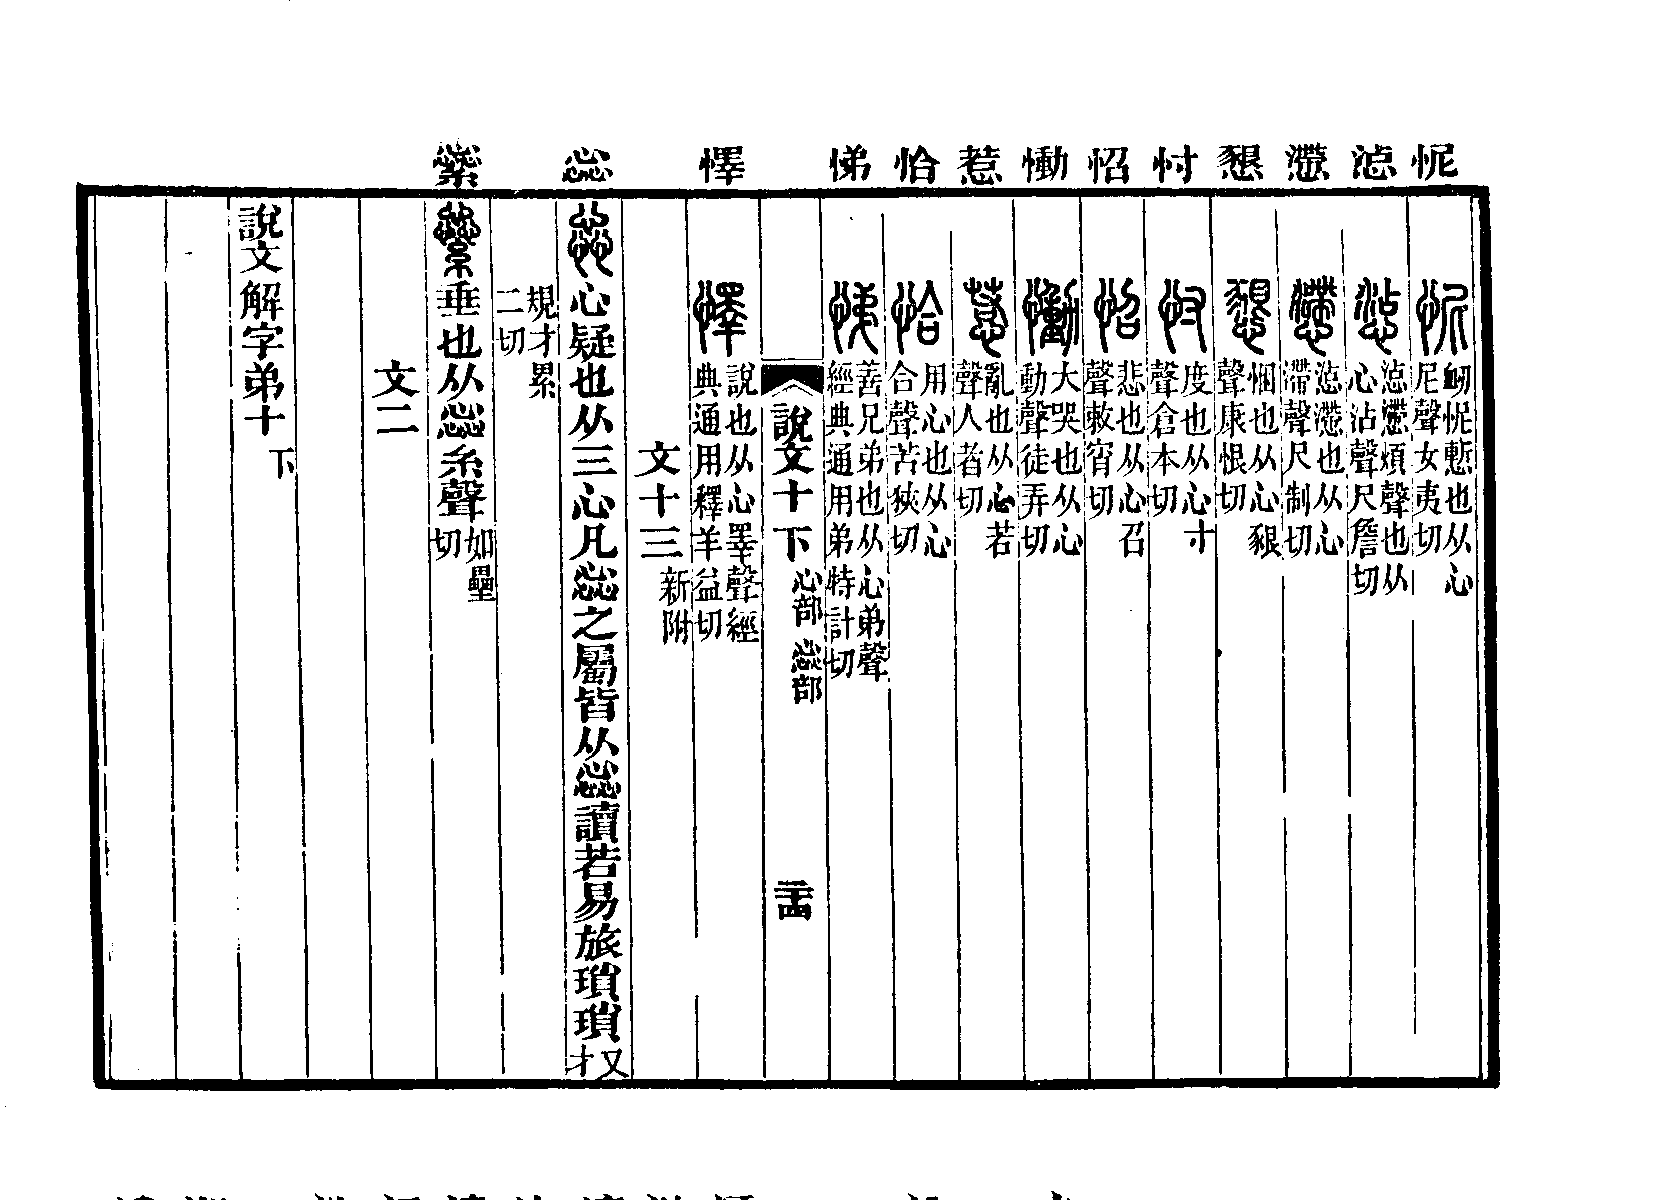 怩 惉 懘 懇 忖 怊 慟 惹 恰 悌 懌 惢 繠
怩 𢗗怩慙也从心尼聲女夷切
惉 惉懘煩聲也从心沾聲尺詹切
懘 惉懘也从心滯聲尺制切
懇 悃也从心豤聲康恨切
忖 度也从心寸聲倉本切
怊 悲也从心召聲敕宵切
慟 大哭也从心動聲徒弄切
惹 亂也从心若聲人者切
恰 用心也从心合聲苦狹切
悌 善兄弟也从心弟聲經典通用弟特計切
說文十下 心部 惢部 二十四
懌 說也从心睪聲經典通用釋羊益切
文十三 新附
惢 心疑也从三心凡惢之屬皆从惢讀若易旅瑣瑣 又才
規才累二切
繠 垂也从惢糸聲 如壘切
文二
說文解字弟十 下